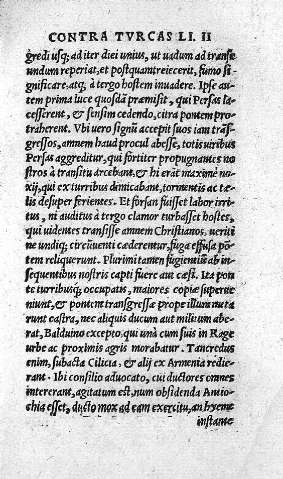 CONTRA TVRCAS LI. II
gredi usq; ad iter diei unius, ut uadum ad transe
undum reperiat, et postquam treiecerit, fumo si-
gnificare, atq; à tergo hostem inuadere. Ipse au-
tem prima luce quosdã præmisit, qui Persas la-
cesserent, & sensim cedendo, citra pontem pro-
traherent. Vbi uero signũ accepit suos iam trãs-
gressos, amnem haud procul abesse, totis uiribus
Persas aggreditur, qui fortiter propugnantes no
stros à transitu arcebant, & hi erãt maxime no-
xij, qui ex turribus dimicabant, tormentis ac te-
lis desuper ferientes. Et forsan fuisset labor irri-
tus, ni auditus à tergo clamor turbasset hostes,
qui uidentes transisse amnem Christianos, ueriti
ne undiq; circũuenti cæderentur, fuga effusa põ-
tem reliquerunt. Plurimi tamen fugientiũ ab in-
sequentibus nostris capti fuere aut cæsi. Ita pon
te turribusq; occupatis, maiores copiæ superue
niunt, & pontem transgressæ prope illum meta
runt castra, nec aliquis ducum aut militum abe-
rat, Balduino excepto, qui unà cum suis in Rage
urbe ac proximis agris morabatur. Tancredus
enim, subacta Cilicia, & alij ex Armenia redie-
rant. Ibi consilio aduocato, cui ductores omnes
intererant, agitatum est, num obsidenda Antio-
chia esset, ducto mox ad eam exercitu, an hyeme
instante